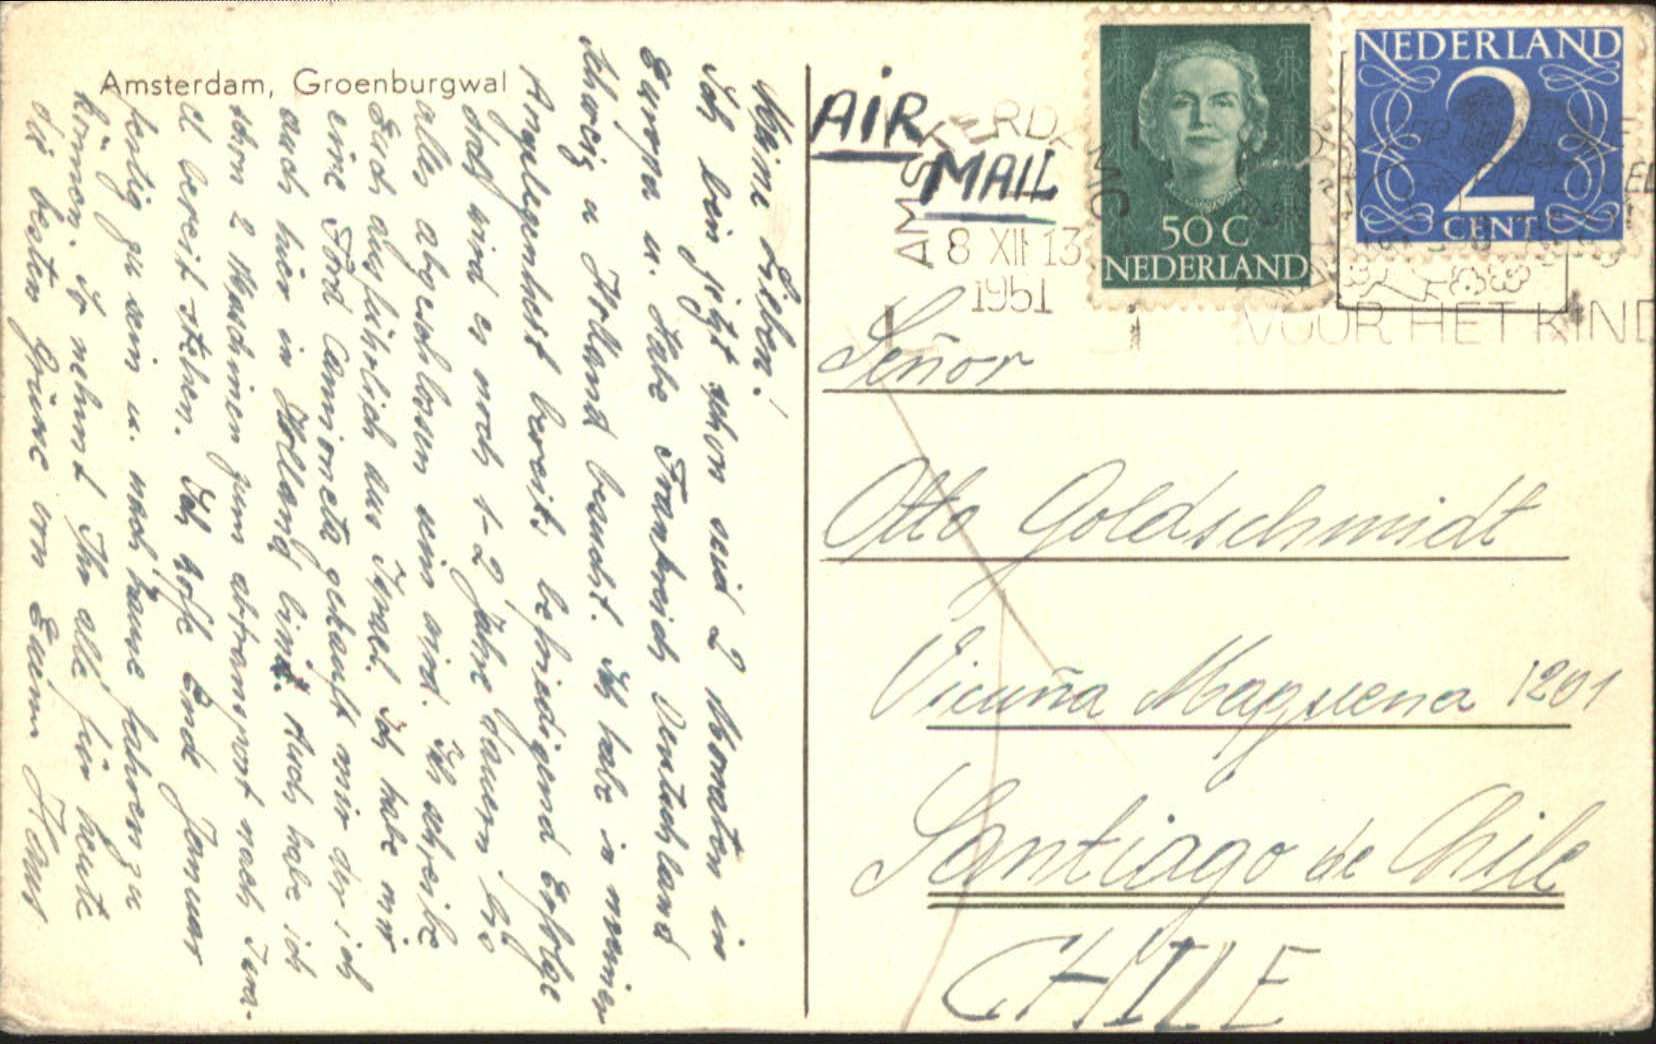 Amsterdam, Groenburgwal
Meine Lieben!
Ich bin jetzt schon seid 2 Monaten in
Europa u. habe Frankreich Deutschland
Schweiz u Holland besucht. Ich habe in meiner
Angelegenheit bereits befriedigend Erfolge
doch wird es noch 1-2 Jahre dauern bis
alles abgeschlossen sein wird. Ich schreibe
Euch ausführlich aus Israel. Ich habe mir
eine Ford Camioneta gekauft mir der ich
auch hier in Holland bin. Auch habe ich
schon 2 Maschinen zum abtransport nach Isra-
el bereit stehen. Ich hoffe Ende Januar
fertig zu sein u. nach hause fahren zu
können. So nehmt Ihr alle für heute
die besten Grüsse von Euerm Hans
AIR
MAIL
AMSTERDAM
8 XII 13
1951
50 C
NEDERLAND
NEDERLAND
2
CENT
VOOR HET KIND
Señor
Otto Goldschmidt
Vicuña Maquena 1201
Santiago de Chile
CHILE